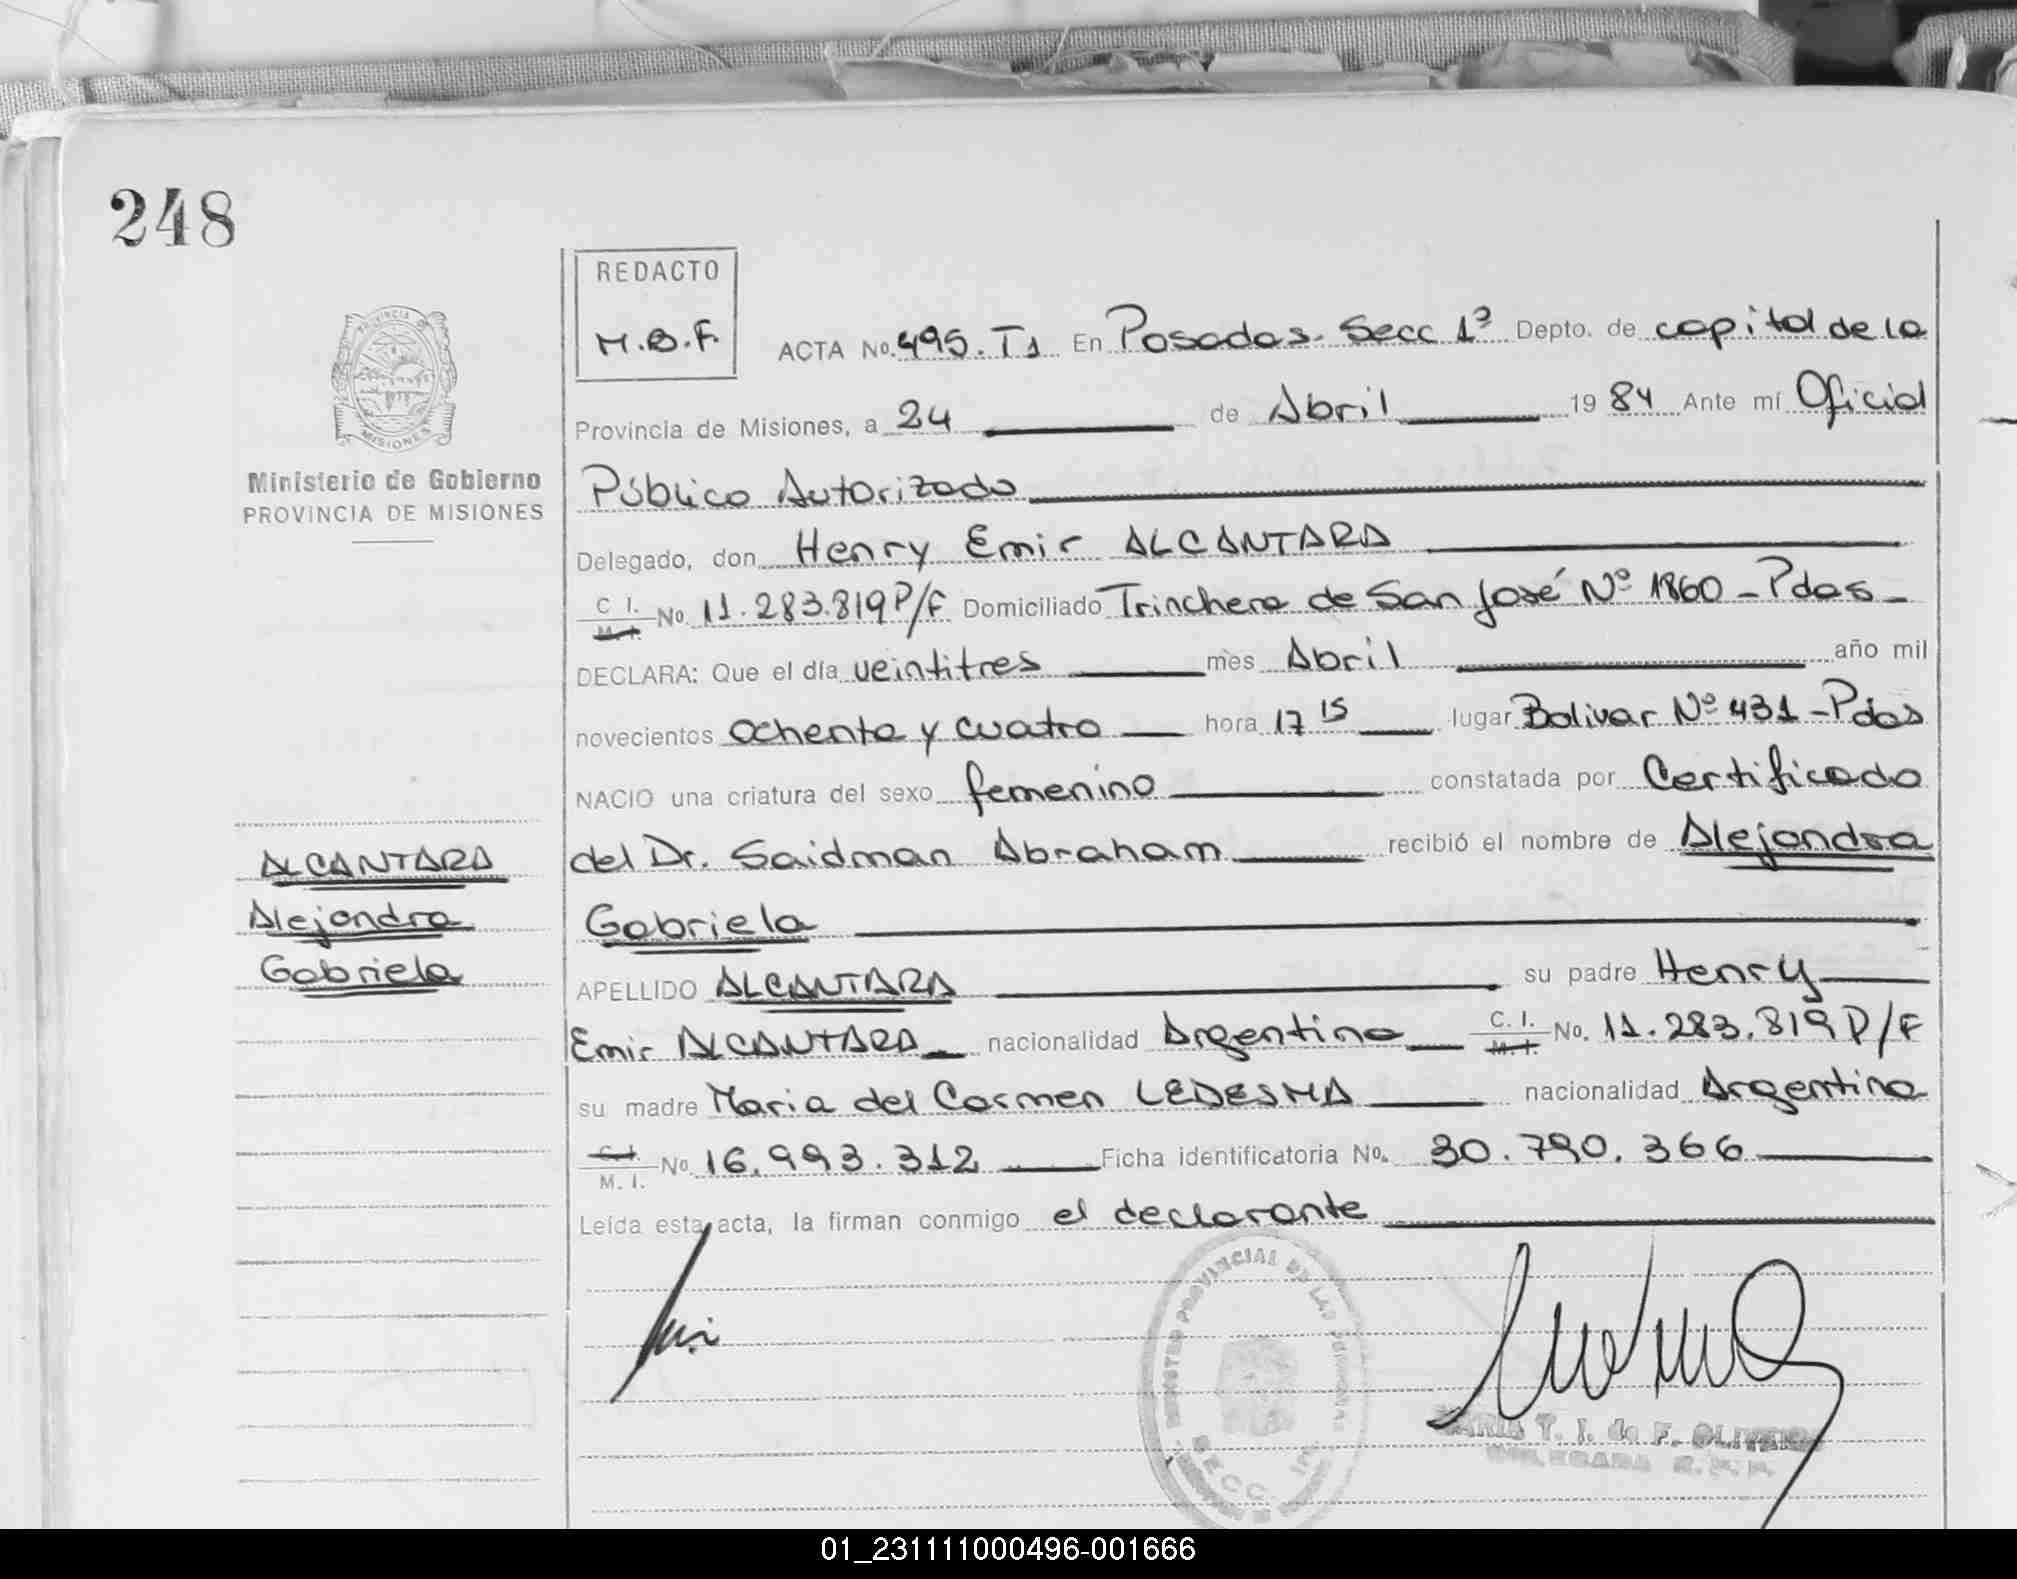 248
REDACTO
M.B.F.
ACTA No. 495. T1 En Posadas. Secc 1ª Depto. de capital de la
Provincia de Misiones, a 24 de Abril 1984 Ante mí Oficial
Público Autorizado
Delegado, don Henry Emir ALCANTARA
C I. M. I. No. 11.283.819 P/F Domiciliado Trinchera de San José Nº 1860 - Pdas -
DECLARA: Que el día veintitres mes Abril año mil
novecientos ochenta y cuatro hora 17 15 lugar Bolivar Nº 431 - Pdas
NACIO una criatura del sexo femenino constatada por Certificado
del Dr. Saidman Abraham recibió el nombre de Alejandra
Gabriela
APELLIDO ALCANTARA su padre Henry
Emir ALCANTARA nacionalidad Argentina C. I. M. I. No. 11.283.819 P/F
su madre Maria del Carmen LEDESMA nacionalidad Argentina
C. I. M. I. No. 16.993.312 Ficha identificatoria No. 30.790.366
Leída esta acta, la firman conmigo el declarante
PROVINCIA DE
MISIONES
Ministerio de Gobierno
PROVINCIA DE MISIONES
ALCANTARA
Alejandra
Gabriela
REGISTRO PROVINCIAL DE LAS PERSONAS
SECC. 1ª
MARIA T. I. de F. OLIVEIRA
DELEGADA R.P.P.
01_231111000496-001666